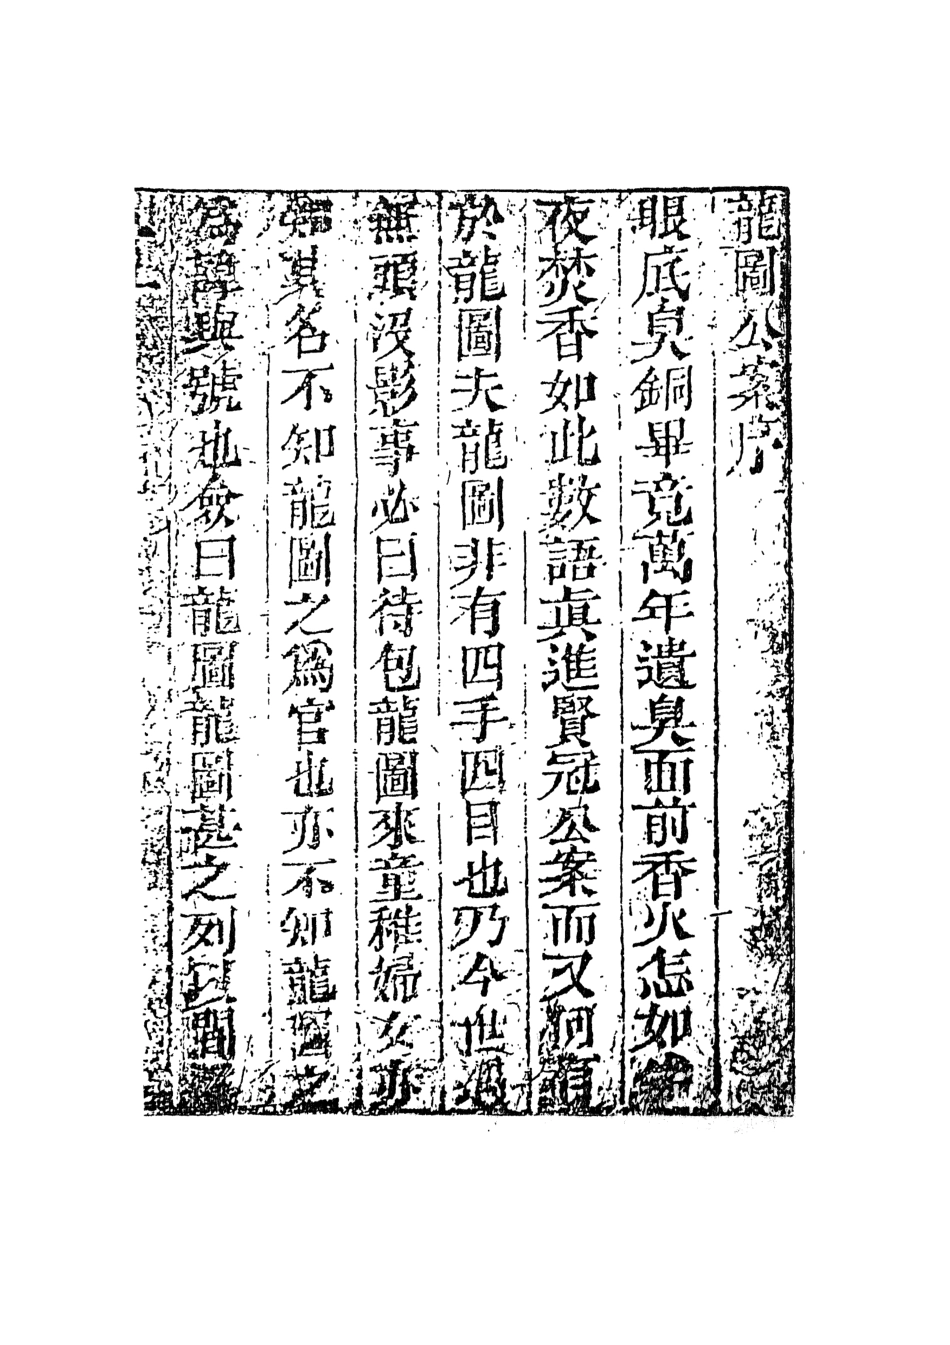 龍圖公案序
眼底臭銅畢竟萬年遺臭面前香火怎如
夜焚香如此數語真進賢冠公案而又何有
於龍圖夫龍圖非有四手四目也乃今世遇
無頭沒影事必曰待包龍圖來童稚婦女亦
知其名不知龍圖之爲官也亦不知龍圖之
爲諱與號也僉曰龍圖龍圖甚之列以閻